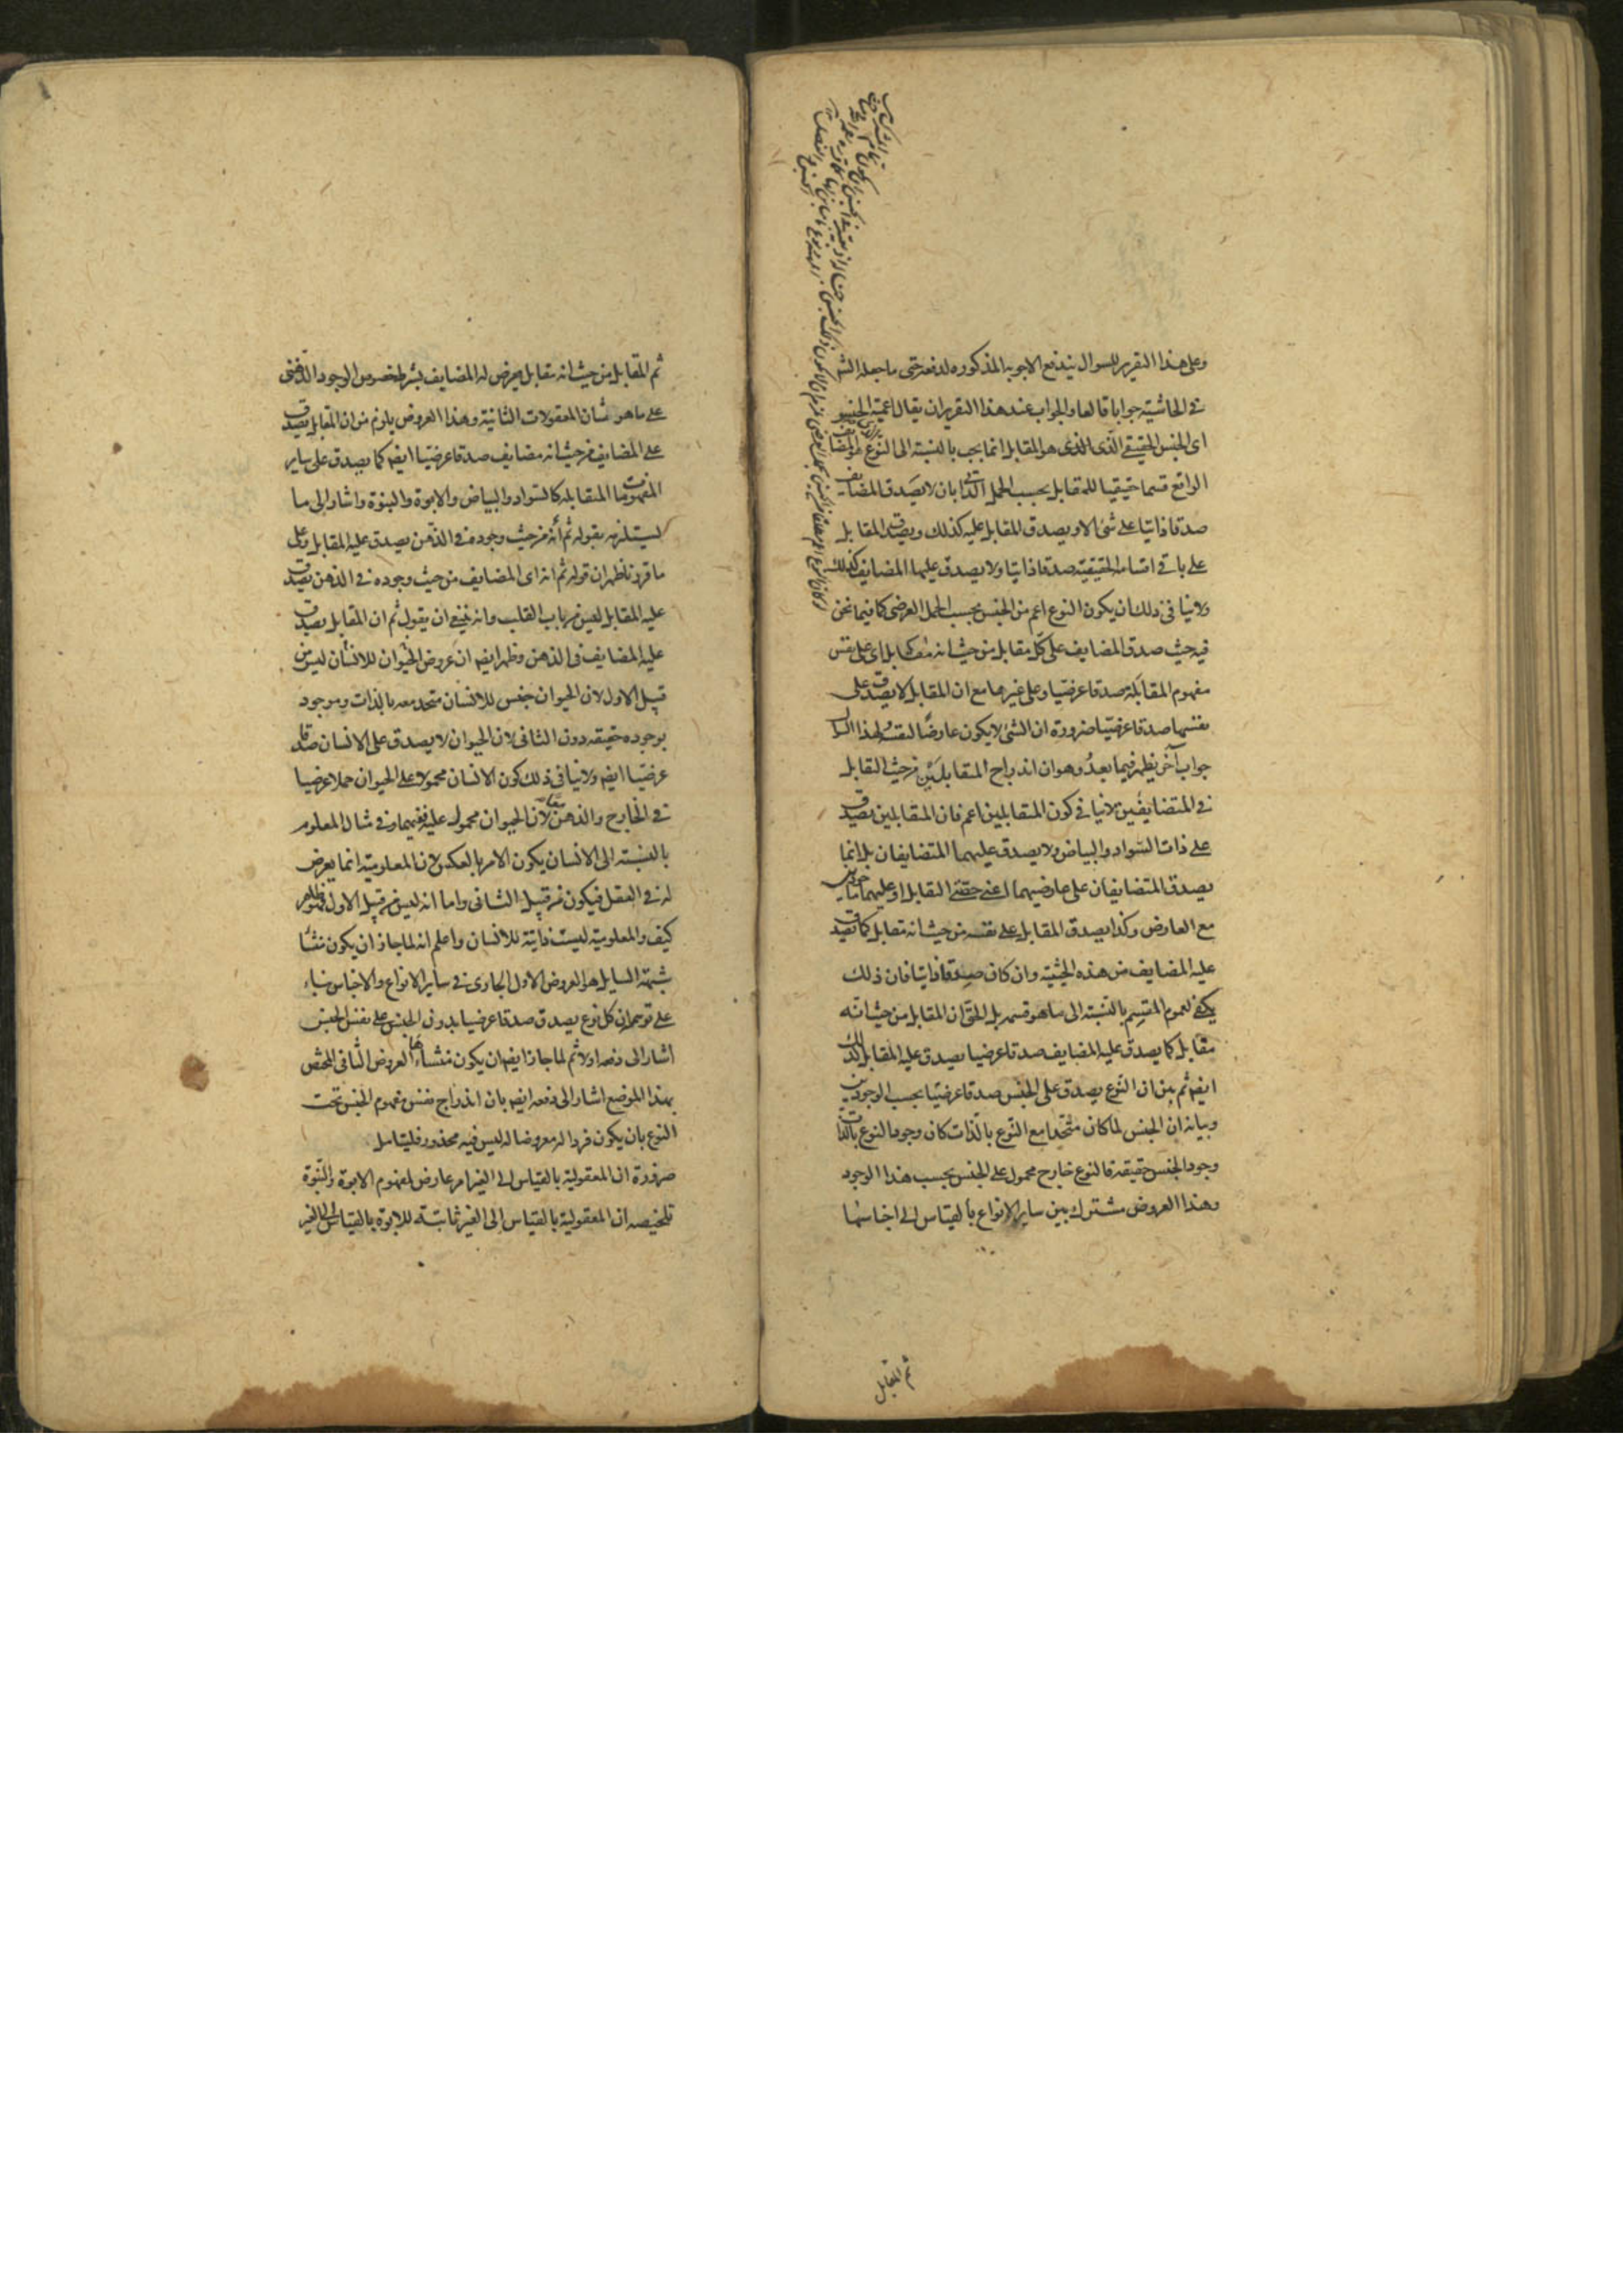 وعلى هذا التقرير للسوال يندفع الاجوبه المذكوره لدفعه حتى ما جعله الشر
فى الحاشية جوابا قالعا والجواب عند هذا التقرير ان يقال اعمية الجنس
اى الجنس الحقيقى الذى هو المقابل انما يجب بالنسبة الى النوع هو المضايف
الواقع قسما حقيقيا للمقابل بحسب الحمل الذاتى بان لا يصدق المضايف
صدقا ذاتيا على شئ الا ويصدق المقابل عليه كذلك ويصدق المقابل
على باقى اقسامه الحقيقية صدقا ذاتيا ولا يصدق عليها المضايف كذلك
ولا ينافى ذلك ان يكون النوع اعم من الجنس بحسب الحمل العرضى كما فيما نحن
فيه حيث صدق المضايف على كل مقابل من حيث انه مقابل اى على نفس
مفهوم المقابلة صدقا عرضيا وعلى غيرها مع ان المقابل لا يصدق على
نفسها صدقا عرضيا ضرورة ان الشئ لا يكون عارضا لنفسه لهذا السوال
جواب آخر يظهر فيما بعد وهو ان اندراج المتقابلين من حيث التقابل
فى المتضايفين لا ينافى كون المتقابلين اعم فان المتقابلين يصدق
على ذات السواد والبياض ولا يصدق عليهما المتضايفان بل انما
يصدق المتضايفان على عارضيهما اعنى حصتى التقابل او عليهما ماخوذين
مع العارض وكذا يصدق المقابل على نفسه من حيث انه مقابل كما يصدق
عليه المضايف من هذه الحيثية وان كان صدقا ذاتيا فان ذلك
يكفى لعموم المقسم بالنسبة الى ما هو قسمه بل الحق ان المقابل من حيث انه
مقابل كما يصدق عليه المضايف صدقا عرضيا يصدق عليه المقابل كذلك
ايضا ثم بين ان النوع يصدق على الجنس صدقا عرضيا بحسب الوجودين
وبيانه ان الجنس لما كان متحدا مع النوع بالذات كان وجود النوع بالذات
وجود الجنس حقيقة فالنوع خارج محمول على الجنس بحسب هذا الوجود
وهذا العروض مشترك بين ساير الانواع بالقياس الى اجناسها
ثم المقابل
ثم المقابل من حيث انه مقابل يعرض له المضايف بشرط خصوص الوجود الذهنى
على ما هو شان المعقولات الثانية وهذا العروض يلزم من ان المقابل يصدق
على المضايف من حيث انه مضايف صدقا عرضيا ايضا كما يصدق على ساير
المفهومات المتقابله كالسواد والبياض والابوة والبنوة واشار الى ما
يستلزمه بقوله ثم انه من حيث وجوده فى الذهن يصدق عليه المقابل وعلى
ما قررنا ظهر ان قوله ثم انه اى المضايف من حيث وجوده فى الذهن يصدق
عليه المقابل ليس من باب القلب وانه ينبغى ان يقول ثم ان المقابل يصدق
عليه المضايف فى الذهن وظهر ايضا ان عروض الحيوان للانسان ليس من
قبيل الاول لان الحيوان جنس للانسان متحد معه بالذات وموجود
بوجوده حقيقة دون الثانى لان الحيوان لا يصدق على الانسان صدقا
عرضيا ايضا ولا ينافى ذلك كون الانسان محمولا على الحيوان حملا عرضيا
فى الخارج والذهن لان الحيوان محمول عليه فيهما وفى مثال المعلوم
بالنسبة الى الانسان يكون الامر بالعكس لان المعلومية انما يعرض
له فى العقل فيكون من قبيل الثانى واما انه ليس من قبيل الاول فظاهر
كيف والمعلومية ليست ذاتية للانسان واعلم انه لما جاز ان يكون منشأ
شبهة السايل هو العروض الاول الجارى فى ساير الانواع والاجناس بناء
على توهم ان كل نوع يصدق صدقا عرضيا بدون الجنس على نفس الجنس
اشار الى دفعه اولا ثم لما جاز ايضا ان يكون منشاءها العروض الثانى المختص
بهذا الموضع اشار الى دفعه ايضا بان اندراج نفس مفهوم الجنس تحت
النوع بان يكون فردا له معروضا له ليس فيه محذور فليتامل
ضرورة ان المعقولية بالقياس الى الغير امر عارض لمفهوم الابوة والبنوة
تلخيصه ان المعقولية بالقياس الى الغير ثابتة للابوة بالقياس الى الغير